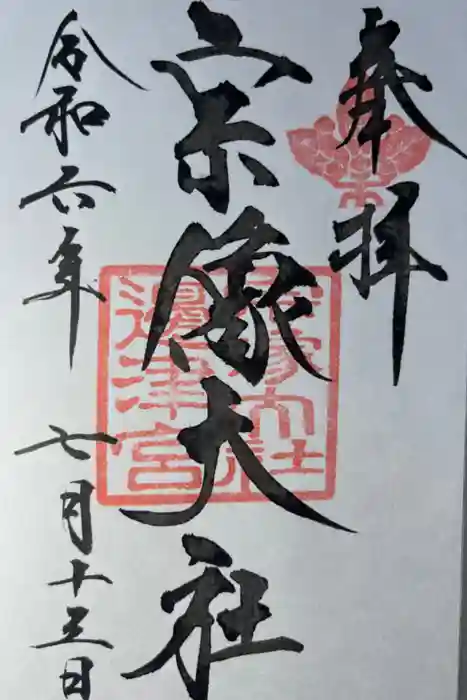 奉拝
宗像大社
宗像大社
邊津宮
令和六年 七月十三日